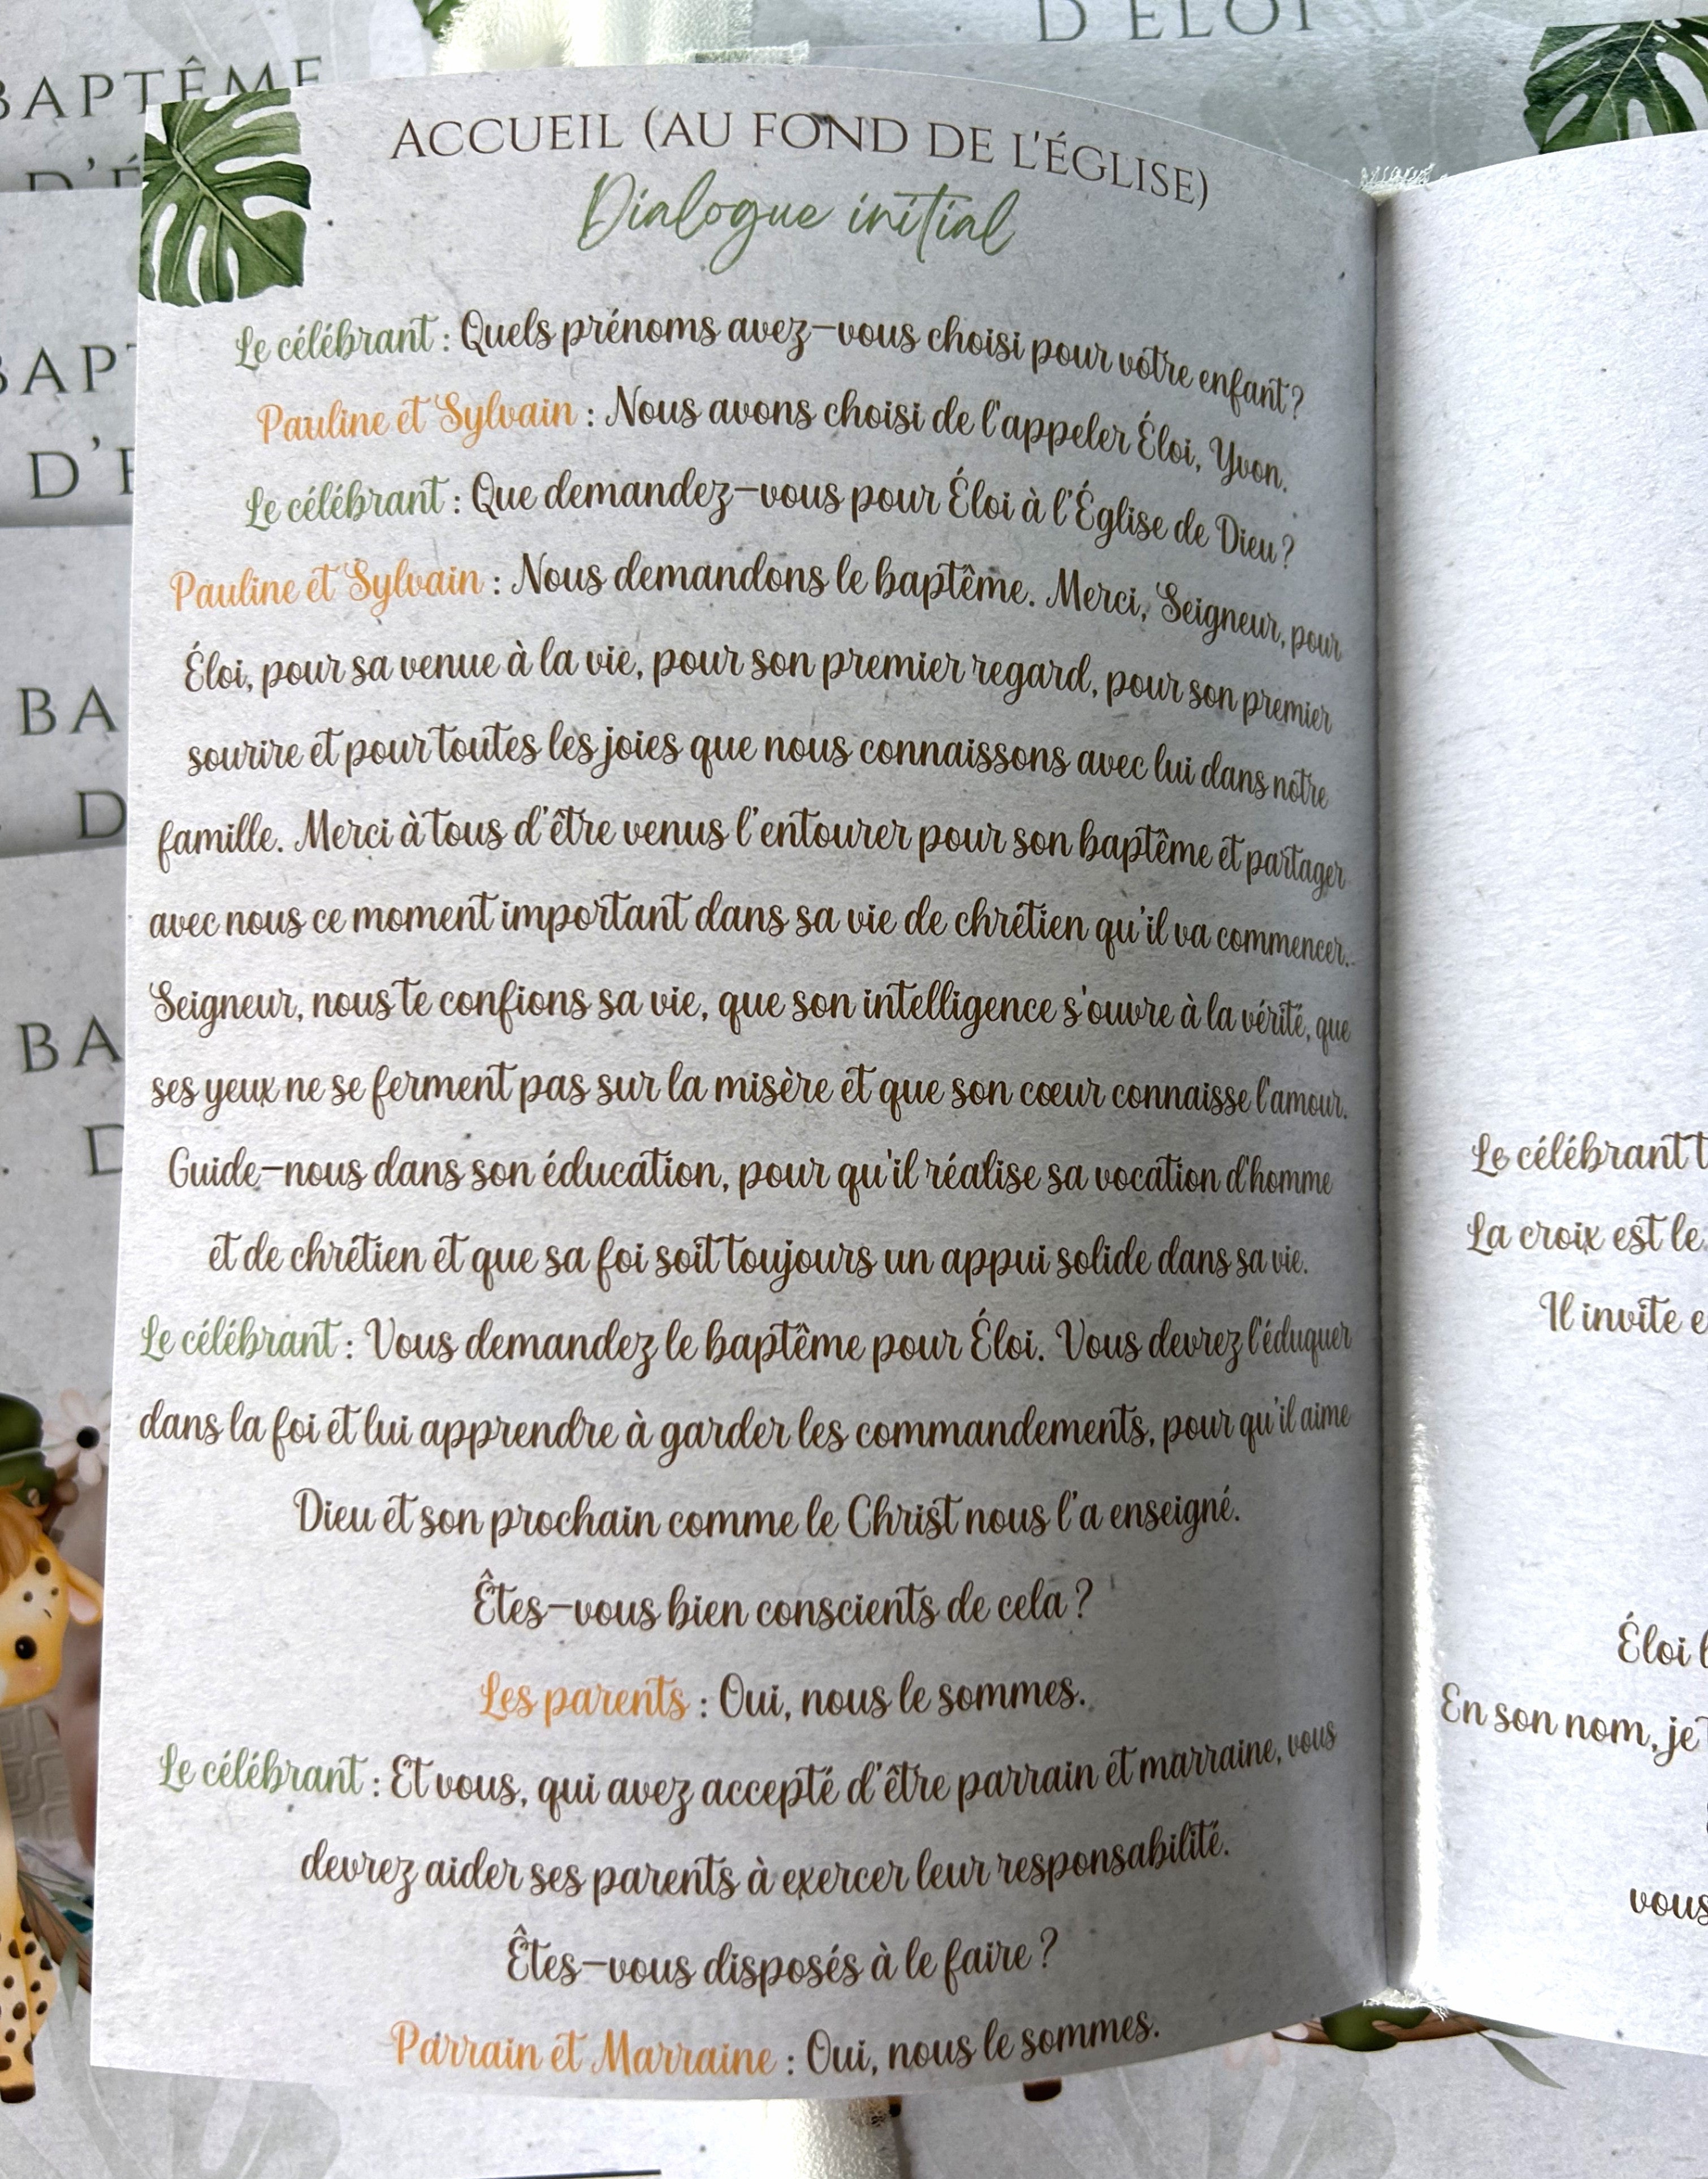 BAPTÊME
D'É
D'ÉLOI
BAPT
D'É
BA
D
BA
D
ACCUEIL (AU FOND DE L'ÉGLISE)
Dialogue initial
Le célébrant : Quels prénoms avez-vous choisi pour votre enfant ?
Pauline et Sylvain : Nous avons choisi de l'appeler Éloi, Yvon.
Le célébrant : Que demandez-vous pour Éloi à l'Église de Dieu ?
Pauline et Sylvain : Nous demandons le baptême. Merci, Seigneur, pour
Éloi, pour sa venue à la vie, pour son premier regard, pour son premier
sourire et pour toutes les joies que nous connaissons avec lui dans notre
famille. Merci à tous d'être venus l'entourer pour son baptême et partager
avec nous ce moment important dans sa vie de chrétien qu'il va commencer.
Seigneur, nous te confions sa vie, que son intelligence s'ouvre à la vérité, que
ses yeux ne se ferment pas sur la misère et que son cœur connaisse l'amour.
Guide-nous dans son éducation, pour qu'il réalise sa vocation d'homme
et de chrétien et que sa foi soit toujours un appui solide dans sa vie.
Le célébrant : Vous demandez le baptême pour Éloi. Vous devrez l'éduquer
dans la foi et lui apprendre à garder les commandements, pour qu'il aime
Dieu et son prochain comme le Christ nous l'a enseigné.
Êtes-vous bien conscients de cela ?
Les parents : Oui, nous le sommes.
Le célébrant : Et vous, qui avez accepté d'être parrain et marraine, vous
devrez aider ses parents à exercer leur responsabilité.
Êtes-vous disposés à le faire ?
Parrain et Marraine : Oui, nous le sommes.
Le célébrant t
La croix est le
Il invite e
Éloi
En son nom, je
vous